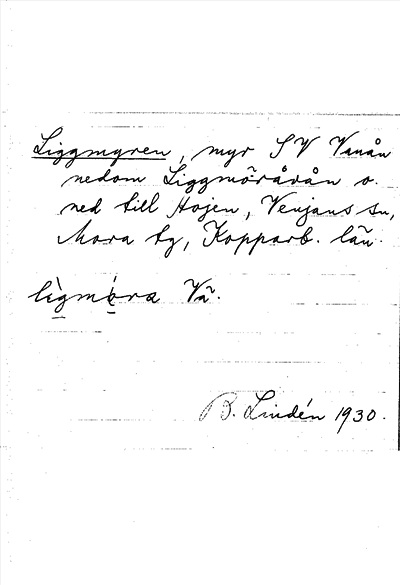 Liggmyren, myr SV Vanån
nedom Liggmöråran o.
ned till Hojen, Venjans sn,
Mora tg, Kopparb. län.
lìgmóra Vä.
B. Lindén 1930.